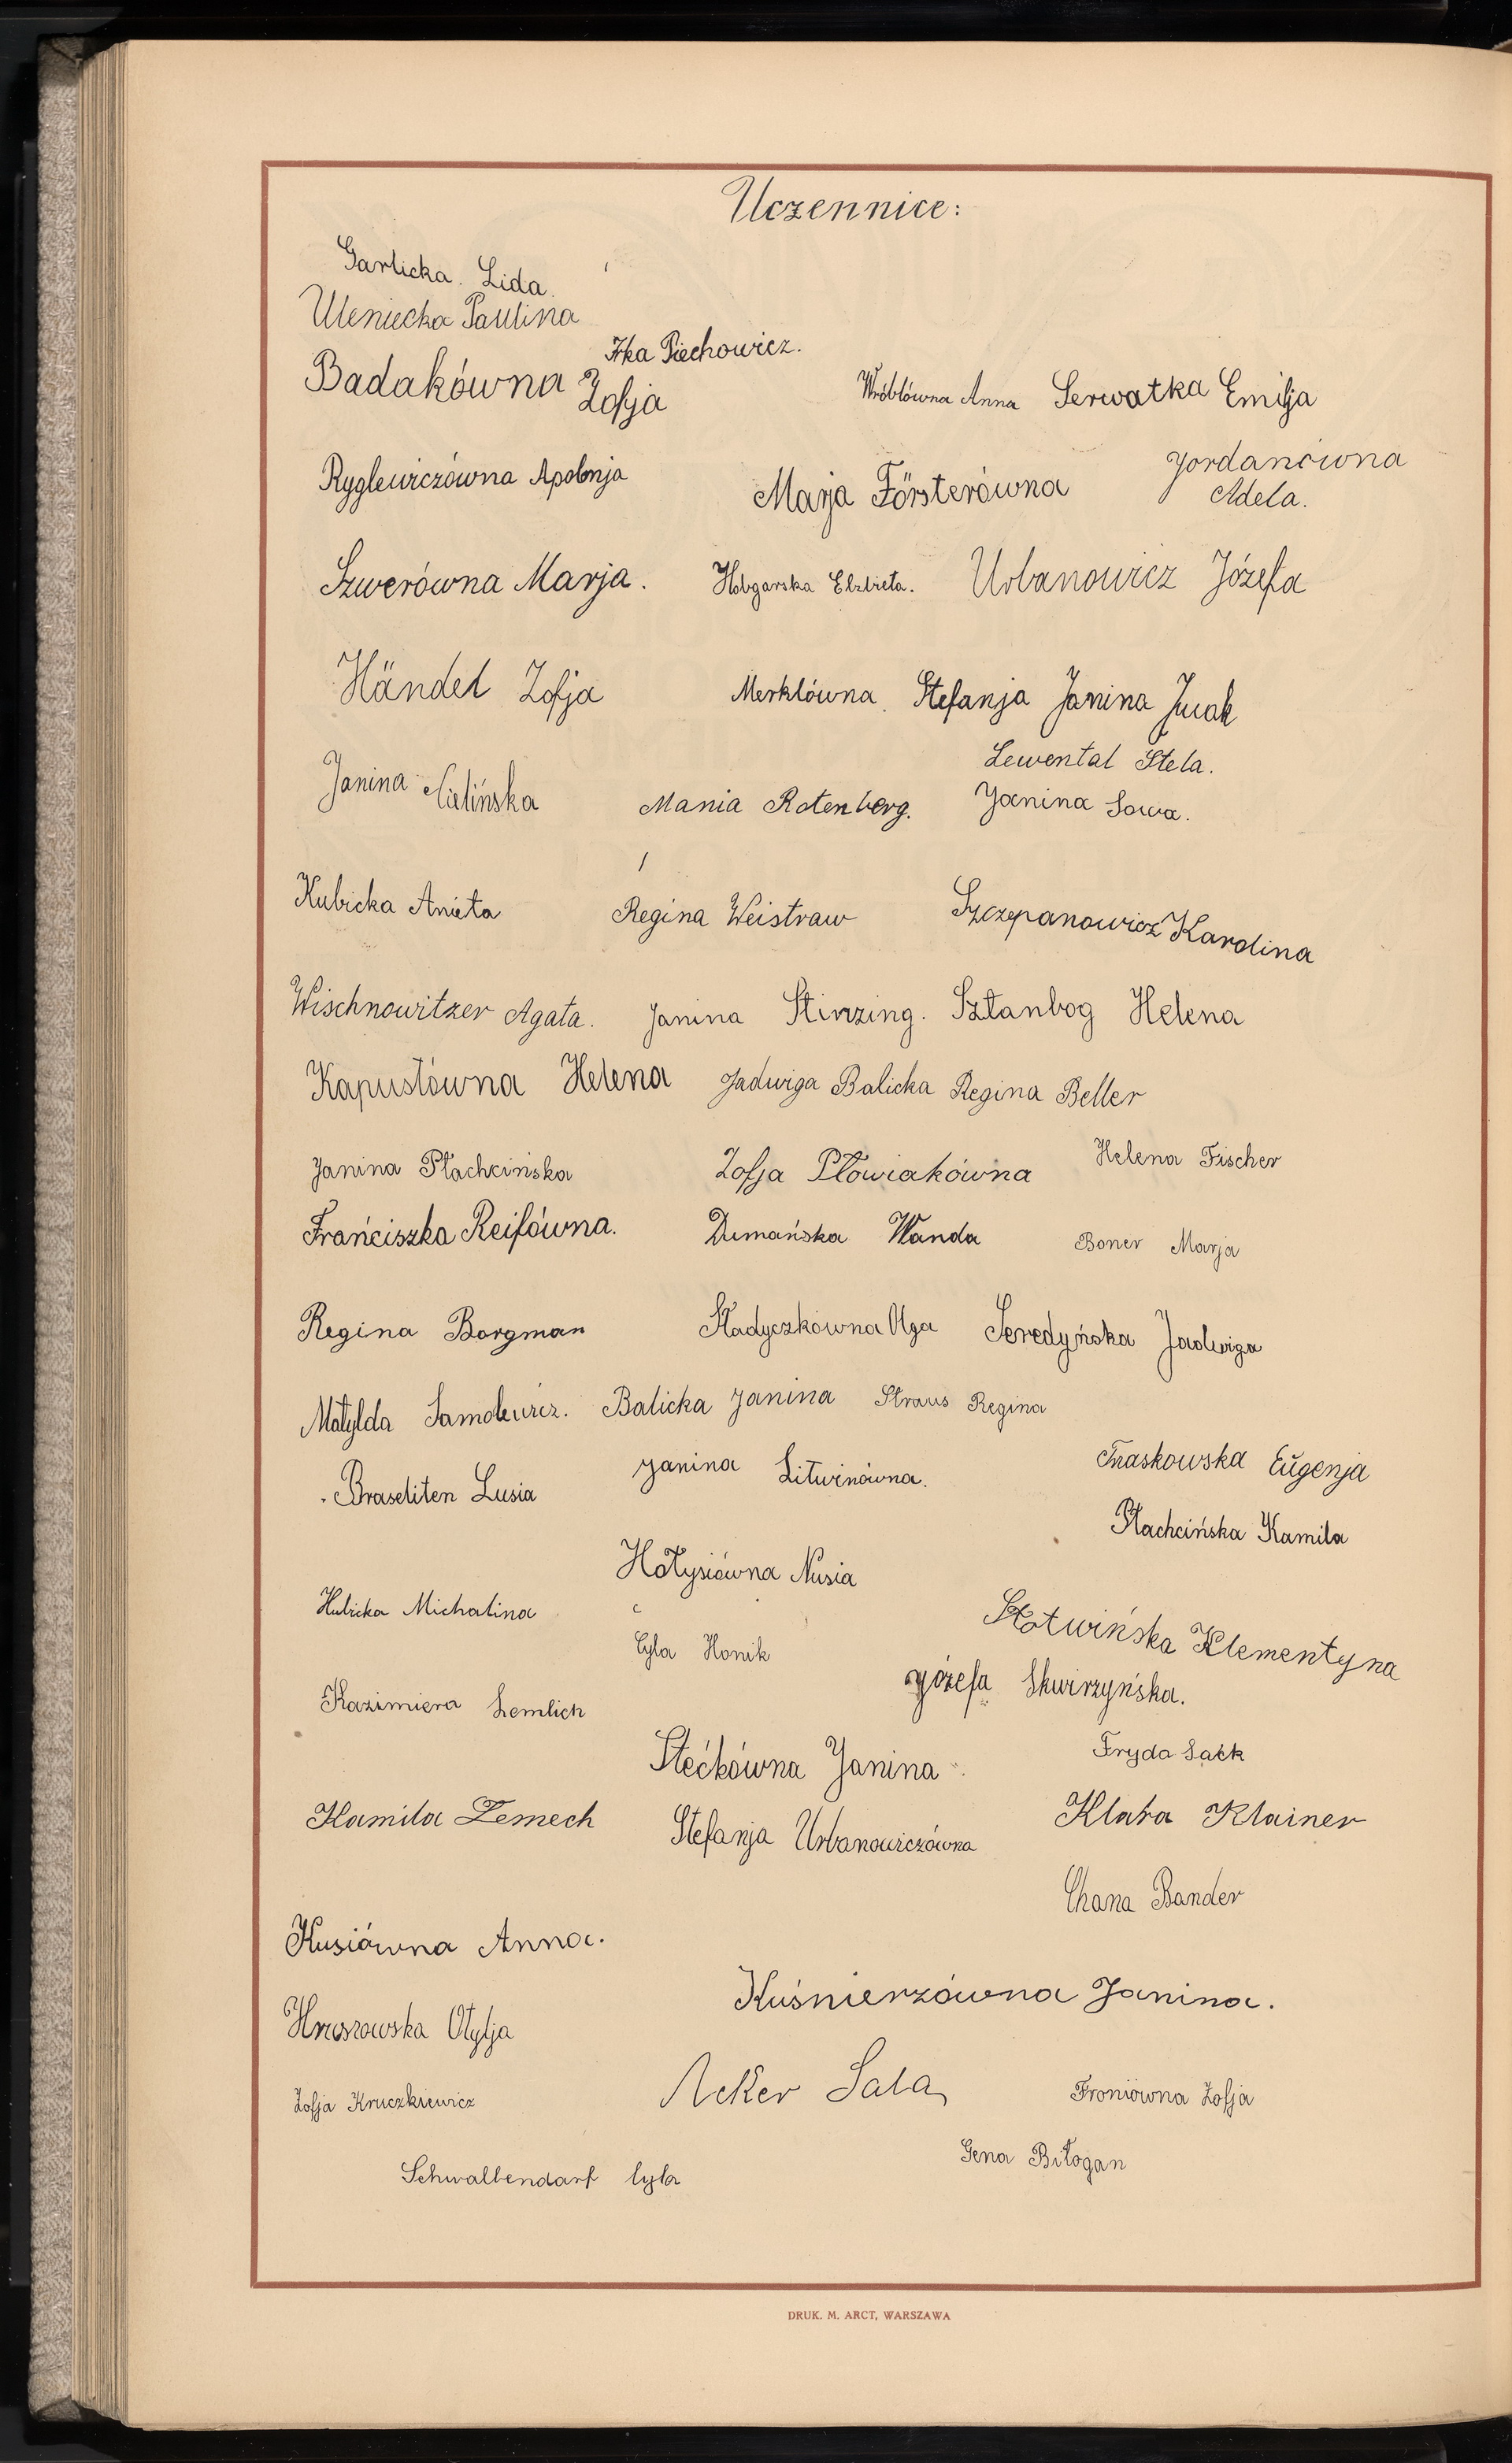 Uczennice:
Garlicka Lida
Uleniecka Paulina
Irka Piechowicz.
Badakówna Zofja
Wróblówna Anna Serwatka Emilja
Ryglewiczówna Apolonja
Marja Försterówna
Jordanówna
Adela.
Szwerówna Marja.
Elżbieta.
Urbanowicz Józefa
Händel Zofja
Merklówna Stefanja
Janina
Janina
Lewental Stela.
Mania Rotenberg.
Janina Sowa.
Kubicka Anieta
Regina Weistraw
Szczepanowicz Karolina
Wischnowitzer Agata.
Janina Stinzing.
Sztanbog Helena
Kapustówna Helena
Jadwiga Balicka
Regina Beller
Janina Płachcińska
Zofja Płowiakówna
Helena Fischer
Franciszka Reifówna.
Dumańska Wanda
Boner Marja
Regina Borgman
Sładyczkówna Olga
Seredyńska Jadwiga
Matylda Samolewicz.
Balicka Janina
Straus Regina
Janina Litwinówna.
Traskowska Eugenja
Braseliten Lusia
Płachcińska Kamila
Hołysiówna Nusia
Hubicka Michalina
Słotwińska Klementyna
Cyla Honik
Józefa Skwirzyńska.
Kazimiera Lemlich
Stećkówna Janina
Fryda Sack
Kamila Zemech
Stefanja Urbanowiczówna
Klara Klainer
Chana Bander
Kusiówna Anna.
Kuśnierzówna Janina.
Hruszowska Otylja
Zofja Kruczkiewicz
Acker Sala
Froniówna Zofja
Gena Biłogan
Schwalbendorf Cyla
DRUK. M. ARCT, WARSZAWA